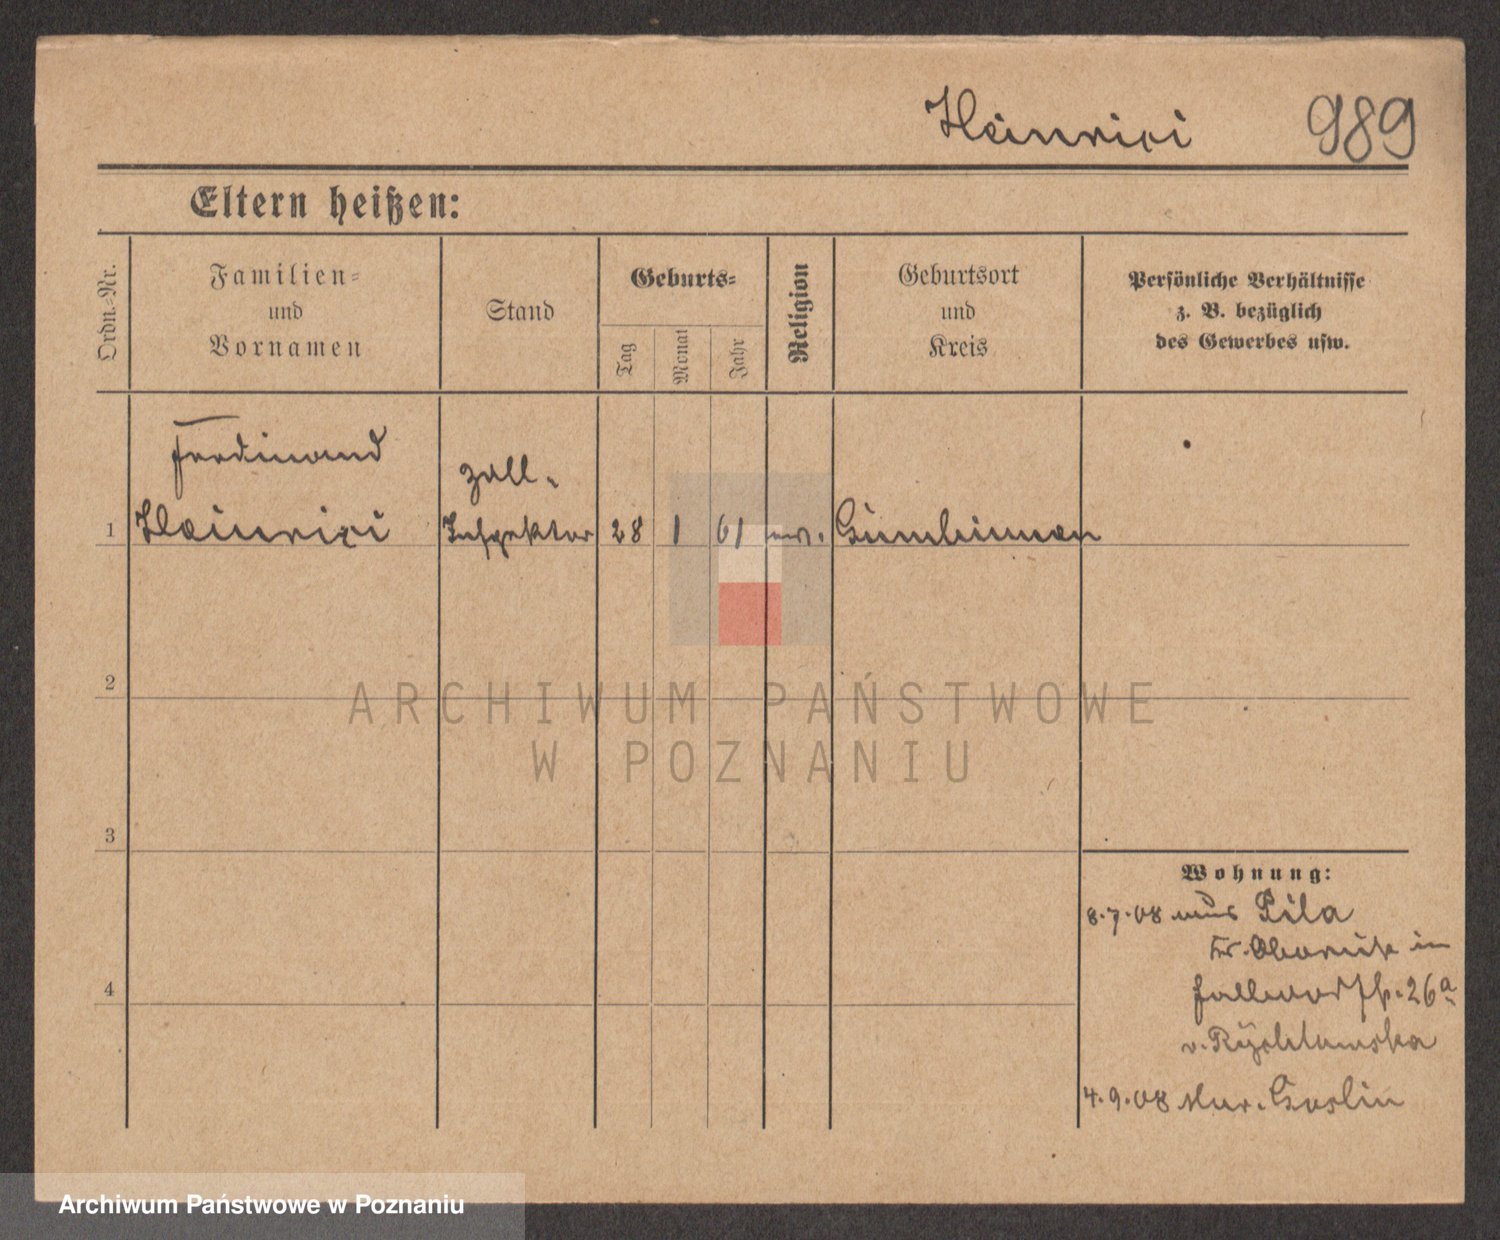 Heinrici 989
Eltern heißen:
Ordn.-Nr.
Familien-
und
Vornamen
Stand
Geburts-
Tag
Monat
Jahr
Religion
Geburtsort
und
Kreis
Persönliche Verhältnisse
z. B. bezüglich
des Gewerbes usw.
Ferdinand
Zoll-
1 Heinrici Inspektor 28 1 61 ev. Gumbinnen
2
ARCHIWUM PAŃSTWOWE
W POZNANIU
3
Wohnung:
8.7.08 aus Pila
Kr. Obornik in
4
26a
v. Rychlewska
4.9.08 Mur. Goslin
Archiwum Państwowe w Poznaniu